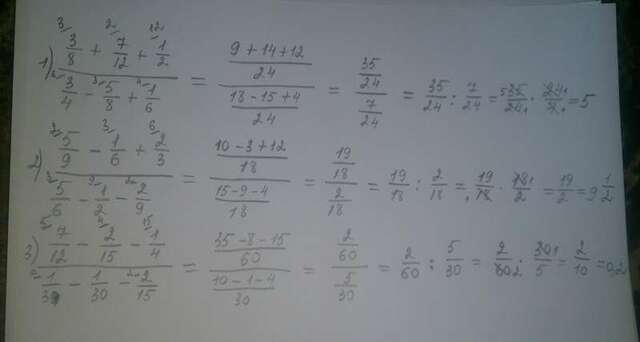 1) (3/8 + 7/12 + 1/2) / (3/4 - 5/8 + 1/6) = ((9+14+12)/24) / ((18-15+4)/24) = (35/24) / (7/24) = 35/24 : 7/24 = 35/24 · 24/7 = 5
2) (5/9 - 1/6 + 2/3) / (5/6 - 1/2 - 2/9) = ((10-3+12)/18) / ((15-9-4)/18) = (19/18) / (2/18) = 19/18 : 2/18 = 19/18 · 18/2 = 19/2 = 9 1/2
3) (7/12 - 2/15 - 1/4) / (1/3 - 1/30 - 2/15) = ((35-8-15)/60) / ((10-1-4)/30) = (2/60) / (5/30) = 2/60 : 5/30 = 2/60 · 30/5 = 2/10 = 0,2